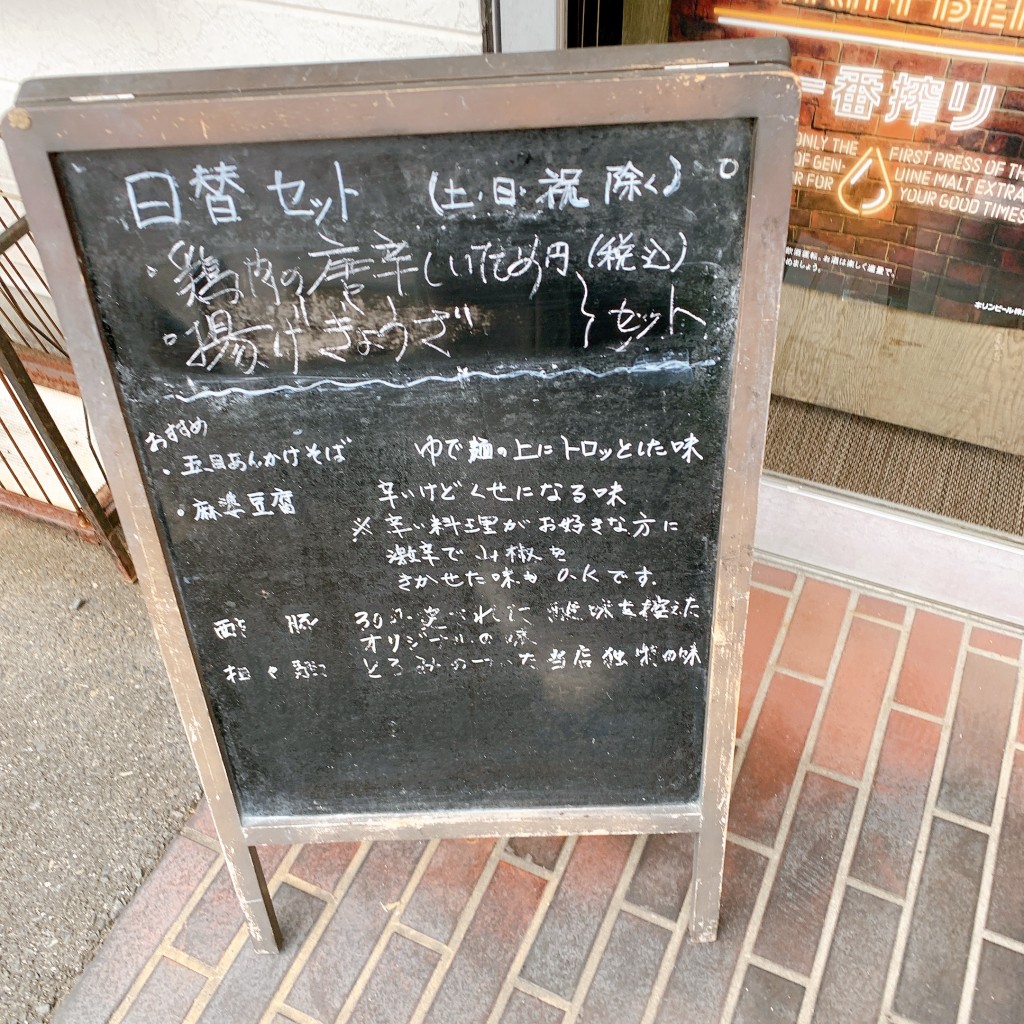 日替セット (土・日・祝除く)
・鶏肉の唐辛しいため 円(税込)
・揚げぎょうざ セット
おすすめ
・五目あんかけそば ゆで麺の上にトロッとした味
・麻婆豆腐 辛いけどくせになる味
※辛い料理がお好きな方に
激辛で山椒を
きかせた味もO.Kです.
酢豚 酸味を控えた
オリジナルの味
担々麺 とろみのついた当店独特の味
一番搾り
ONLY THE
FIRST PRESS OF TH
OF GEN-
UINE MALT EXTRA
R FOR
YOUR GOOD TIMES
飲酒運転。お酒は楽しく適量で。
めましょう。
キリンビール株